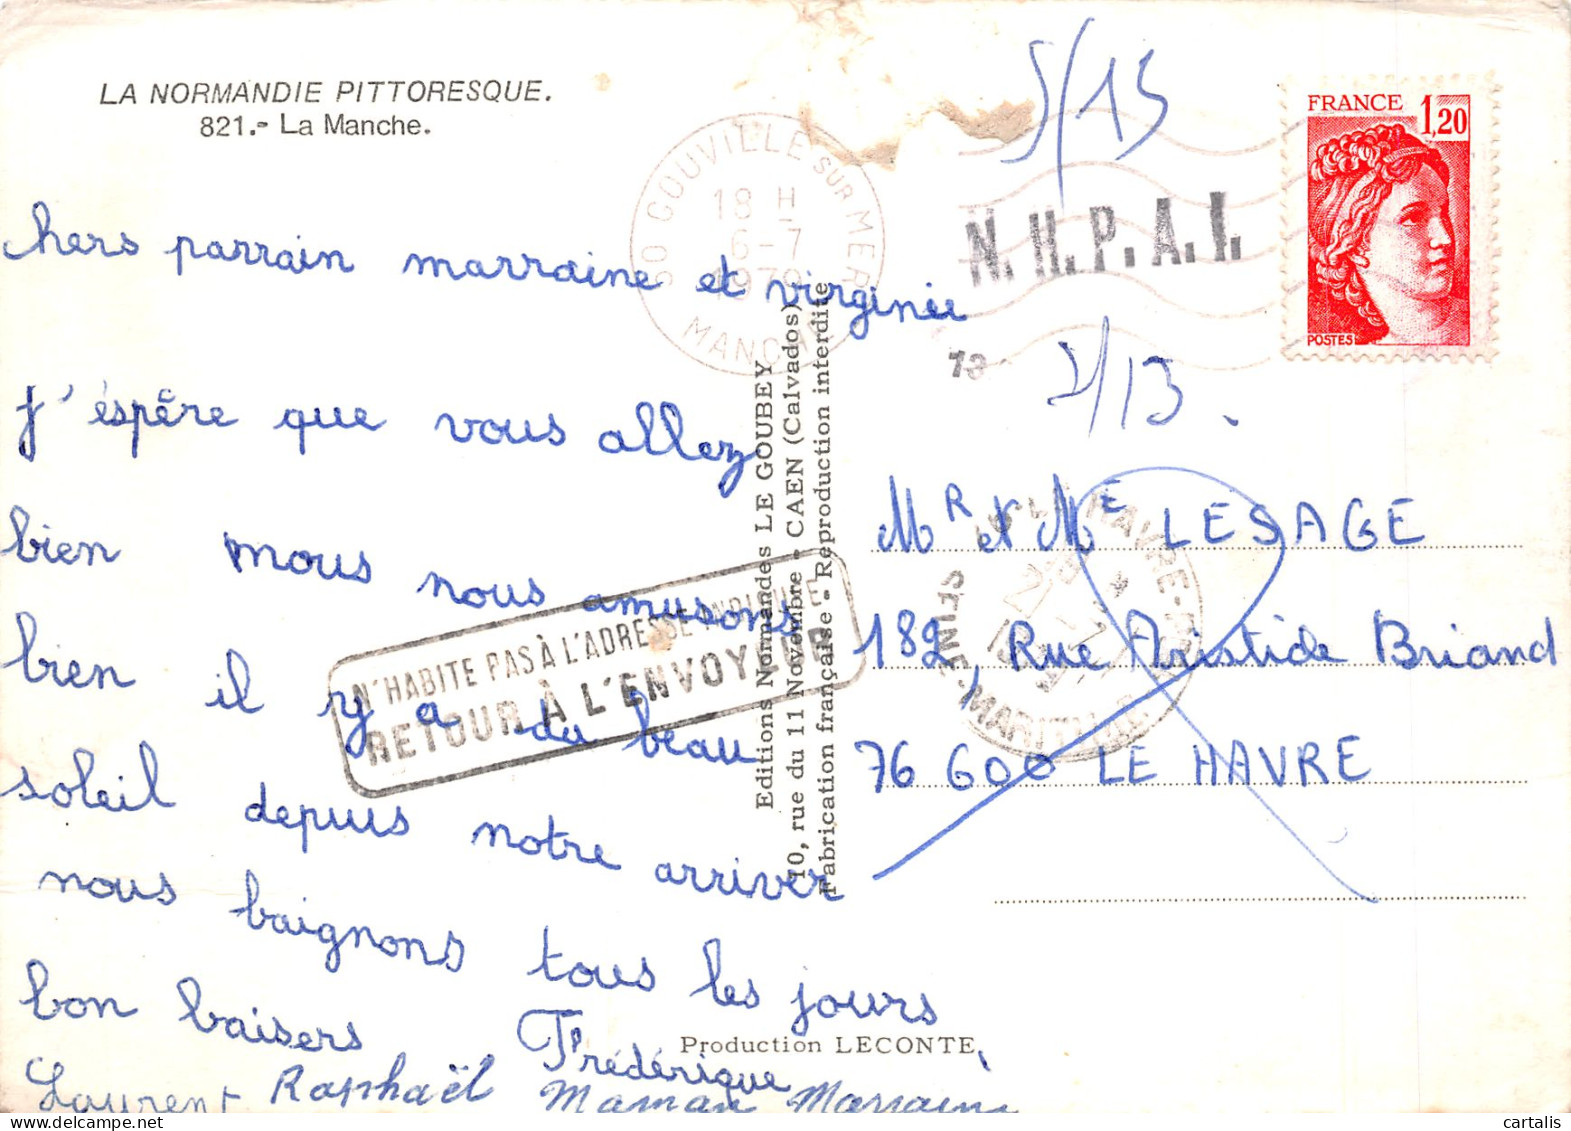 LA NORMANDIE PITTORESQUE.
821.- La Manche.
hers parrain marraine et virginie
j'éspère que vous allez
bien mous nous amusons
bien il y a du beau
soleil depuis notre arriver
nous baignons tous les jours
bon baisers Frédérique
Laurent Raphaël Maman Marraine
Editions Normandes LE GOUBEY
10, rue du 11 Novembre - CAEN (Calvados)
Fabrication française - Reproduction interdite
Production LECONTE
50 GOUVILLE SUR MER
18 H
6-7
1979
MANCHE
5/15
N.H.P.A.I.
13
FRANCE
1,20
POSTES
MR et ME LESAGE
182, Rue Aristide Briand
76 600 LE HAVRE
N'HABITE PAS À L'ADRESSE INDIQUÉE
RETOUR À L'ENVOYEUR
LE HAVRE
SEINE-MARITIME
cartalis